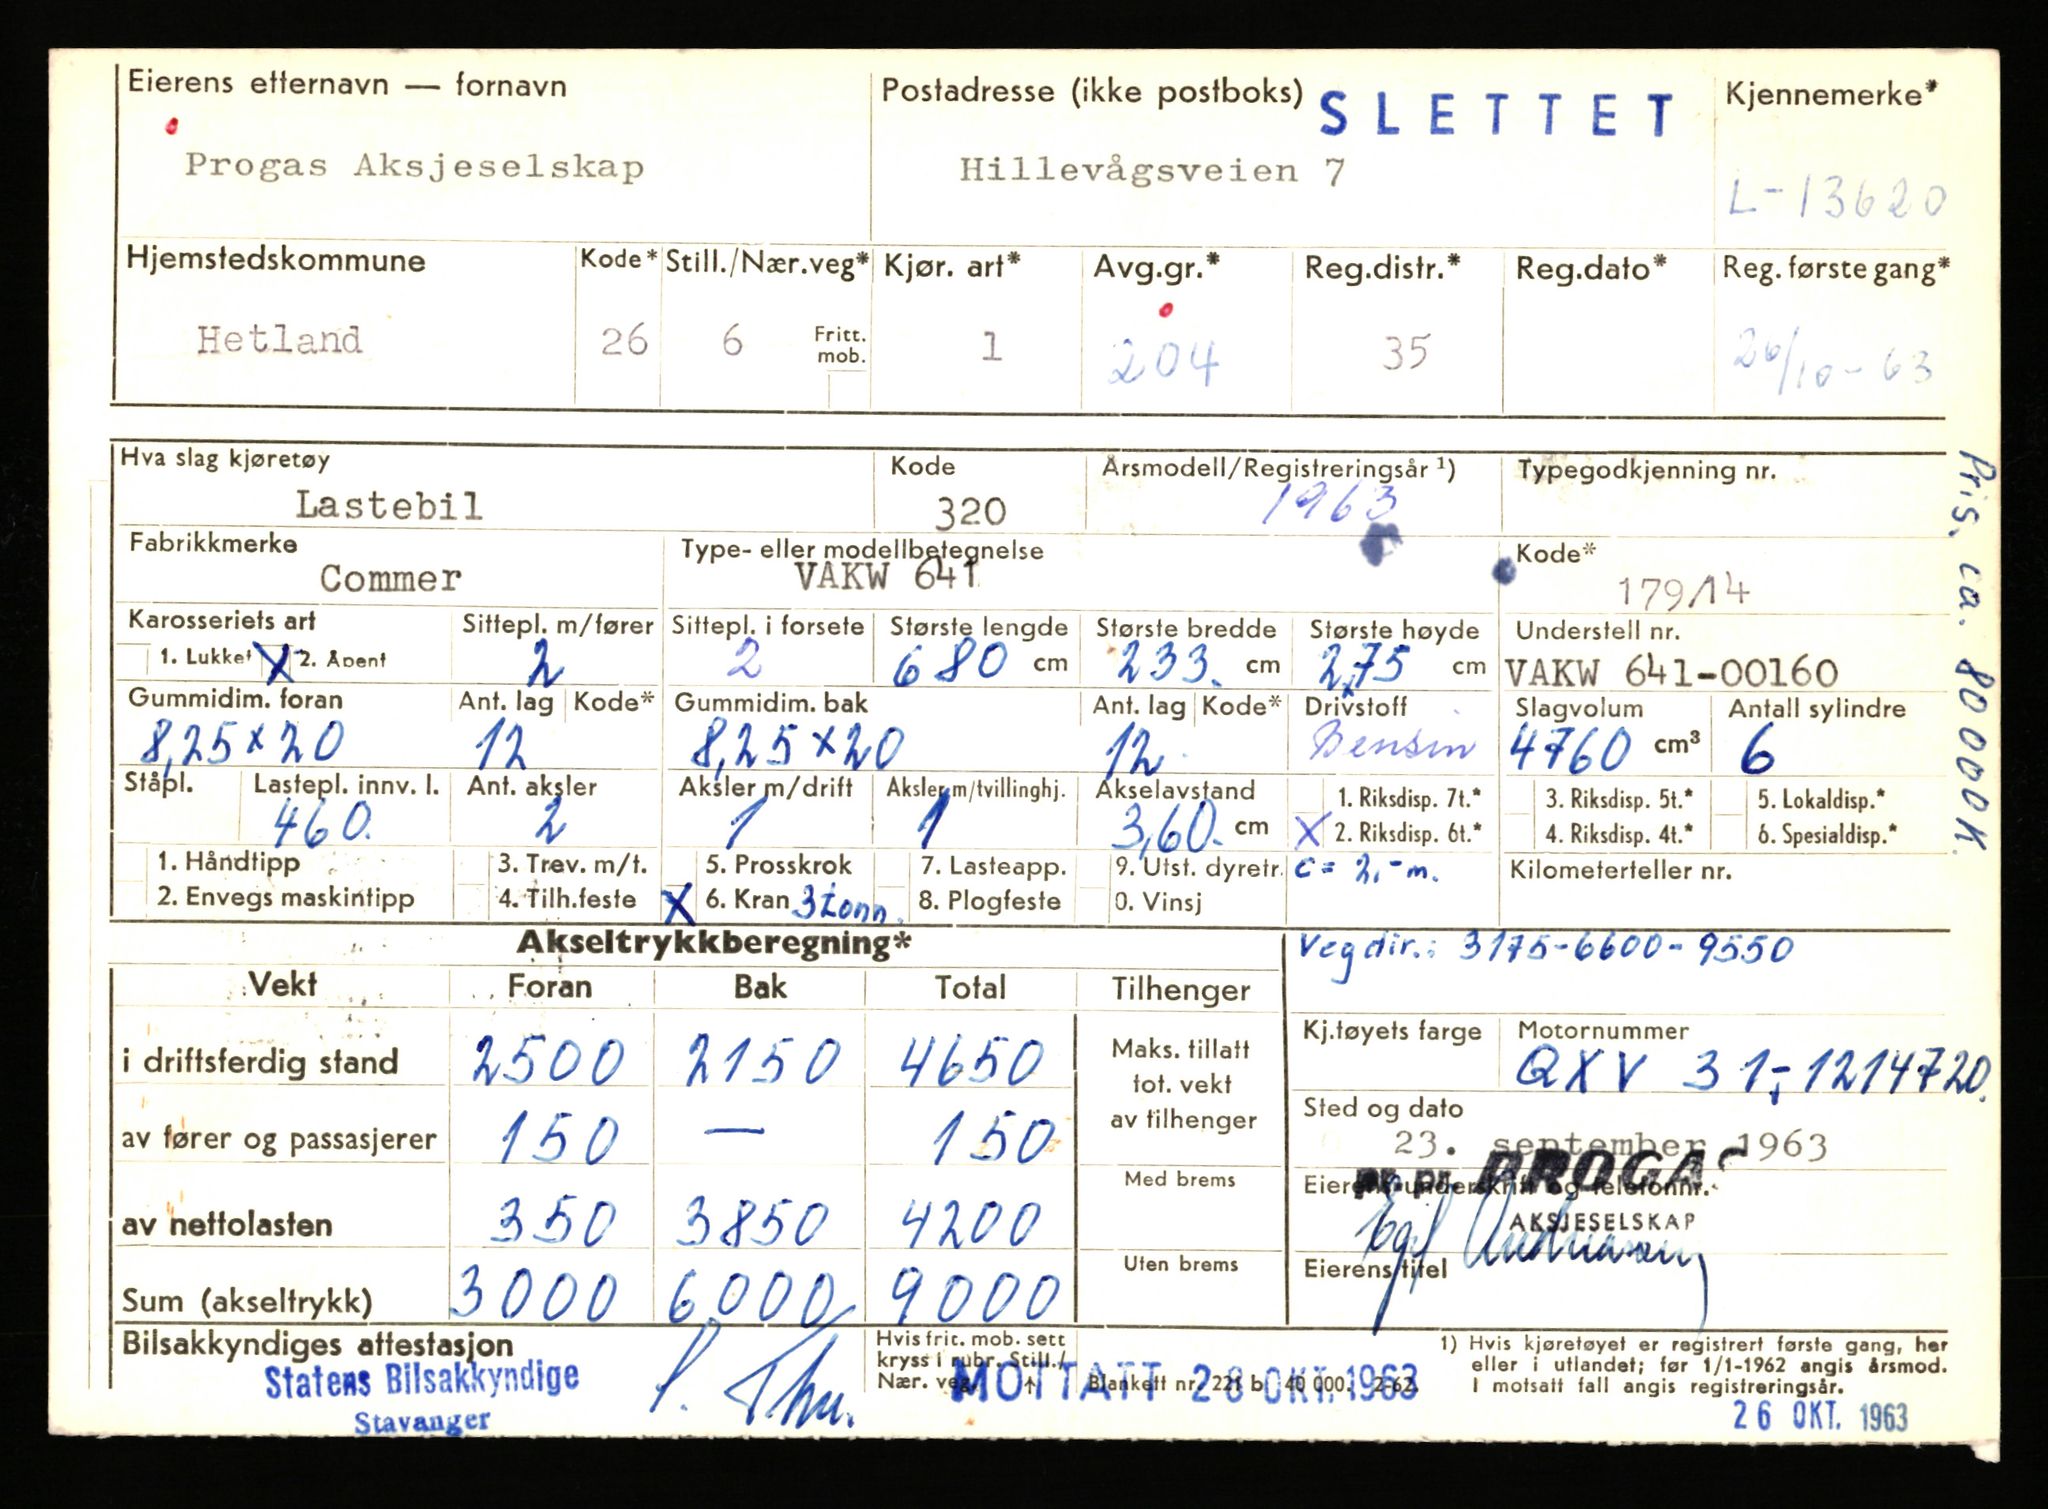 Eierens etternavn — fornavn
Postadresse (ikke postboks) SLETTET
Kjennemerke*
Progas Aksjeselskap
Hillevågsveien 7
L-13620
Hjemstedskommune Kode* Still./Nær.veg* Kjør. art* Avg.gr.* Reg.distr.* Reg.dato* Reg. første gang*
Hetland 26 6 Fritt. mob. 1 204 35 26/10-63
Hva slag kjøretøy Kode Årsmodell/Registreringsår ¹) Typegodkjenning nr.
Lastebil 320 1963
Fabrikkmerke Type- eller modellbetegnelse Kode*
Commer VAKW 641 179/14
Karosseriets art Sittepl. m/fører Sittepl. i forsete Største lengde Største bredde Største høyde Understell nr.
1. Lukket X 2. Åpent 2 2 680 cm 233. cm 2,75 cm VAKW 641-00160
Gummidim. foran Ant. lag Kode* Gummidim. bak Ant. lag Kode* Drivstoff Slagvolum Antall sylindre
8,25x20 12 8,25x20 12 Bensin 4760 cm³ 6
Ståpl. Lastepl. innv. l. Ant. aksler Aksler m/drift Aksler m/tvillinghj. Akselavstand 1. Riksdisp. 7t.* 3. Riksdisp. 5t.* 5. Lokaldisp.*
460. 2 1 1 3,60. cm X 2. Riksdisp. 6t.* 4. Riksdisp. 4t.* 6. Spesialdisp.*
1. Håndtipp 3. Trev. m/t. 5. Prosskrok 7. Lasteapp. 9. Utst. dyretr. c = 2,- m. Kilometerteller nr.
2. Envegs maskintipp 4. Tilh.feste X 6. Kran 3 tonn. 8. Plogfeste 0. Vinsj
Pris. ca. 80000 K.
Akseltrykkberegning*
Vegdir.: 3175-6600-9550
Vekt Foran Bak Total Tilhenger
i driftsferdig stand 2500 2150 4650
av fører og passasjerer 150 — 150
av nettolasten 350 3850 4200
Sum (akseltrykk) 3000 6000 9000
Maks. tillatt
tot. vekt
av tilhenger
Med brems
Uten brems
Kj.tøyets farge Motornummer
QXV 31,-1214720.
Sted og dato
23. september 1963
pr. pr. PROGAS
Eierens underskrift og telefonnr.
AKSJESELSKAP
Eierens titel
Bilsakkyndiges attestasjon
Statens Bilsakkyndige
Stavanger
Hvis frit. mob. sett
kryss i rubr. Still./
Nær. veg. ↑ Blankett nr. 221 b. 40 000. 2-62.
MOTTATT 28 OKT. 1963
1) Hvis kjøretøyet er registrert første gang, her
eller i utlandet; før 1/1-1962 angis årsmod.
I motsatt fall angis registreringsår.
26 OKT. 1963